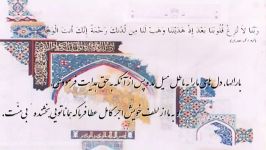 ربنا لا تزغ قلوبنا بعد إذ هديتنا وهب لنا من لدنك رحمة إنك أنت الوهاب
بارالها، دل های ما را به باطل میل مده پس از آنکه به حق هدایت فرمودی
به ما از لطف خویش اجر کامل عطا فرما که همانا تویی بخشنده بی منت.